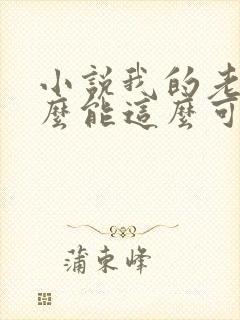 小説我的老
麼能這麼可
蒲東峰